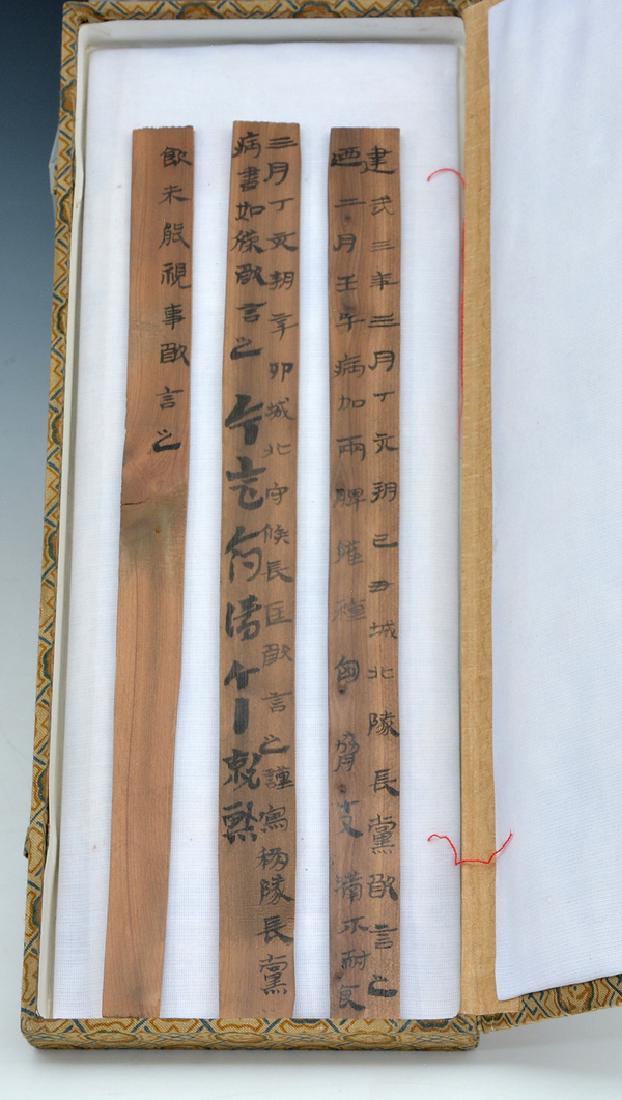 建武三年三月丁亥朔己丑城北隧長黨敢言之
迺二月壬午病加兩脾雍種匈脅丈滿不耐食
三月丁亥朔辛卯城北守候長匡敢言之謹寫移隧長黨
病書如牒敢言之今言府請令就醫
飲未能視事敢言之